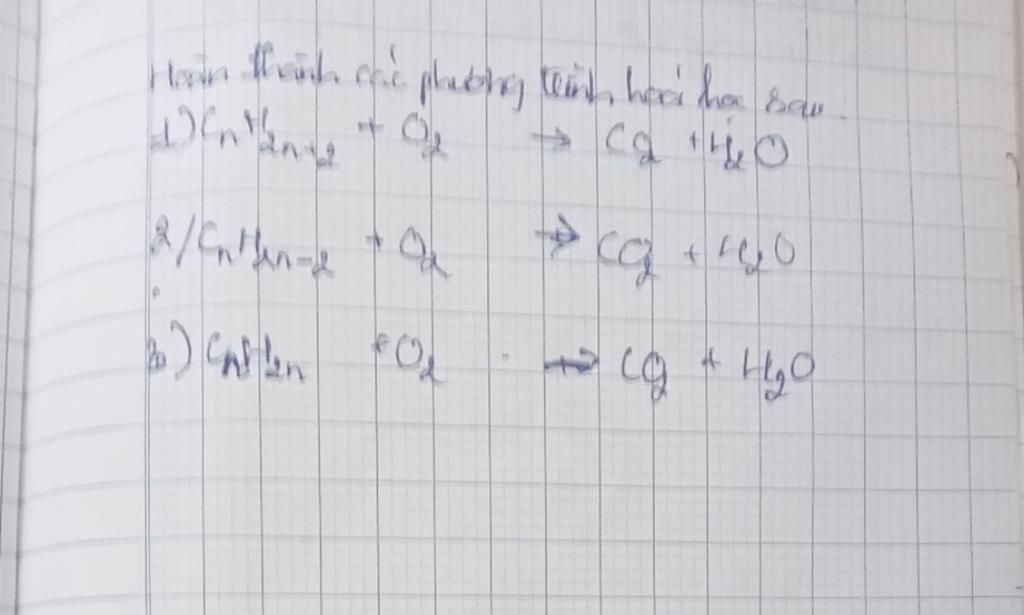 Hoàn thành các phương trình hoá học sau
1) CnH2n+2 + O2 → CO2 + H2O
2/ CnH2n-2 + O2 → CO2 + H2O
3) CnH2n + O2 → CO2 + H2O